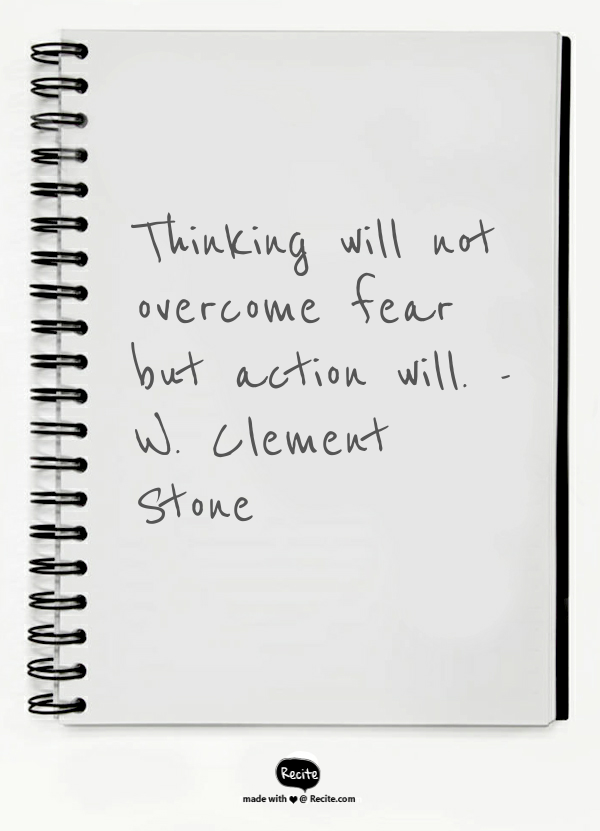 Thinking will not
overcome fear
but action will. -
W. Clement
Stone
Recite
made with ❤ @ Recite.com